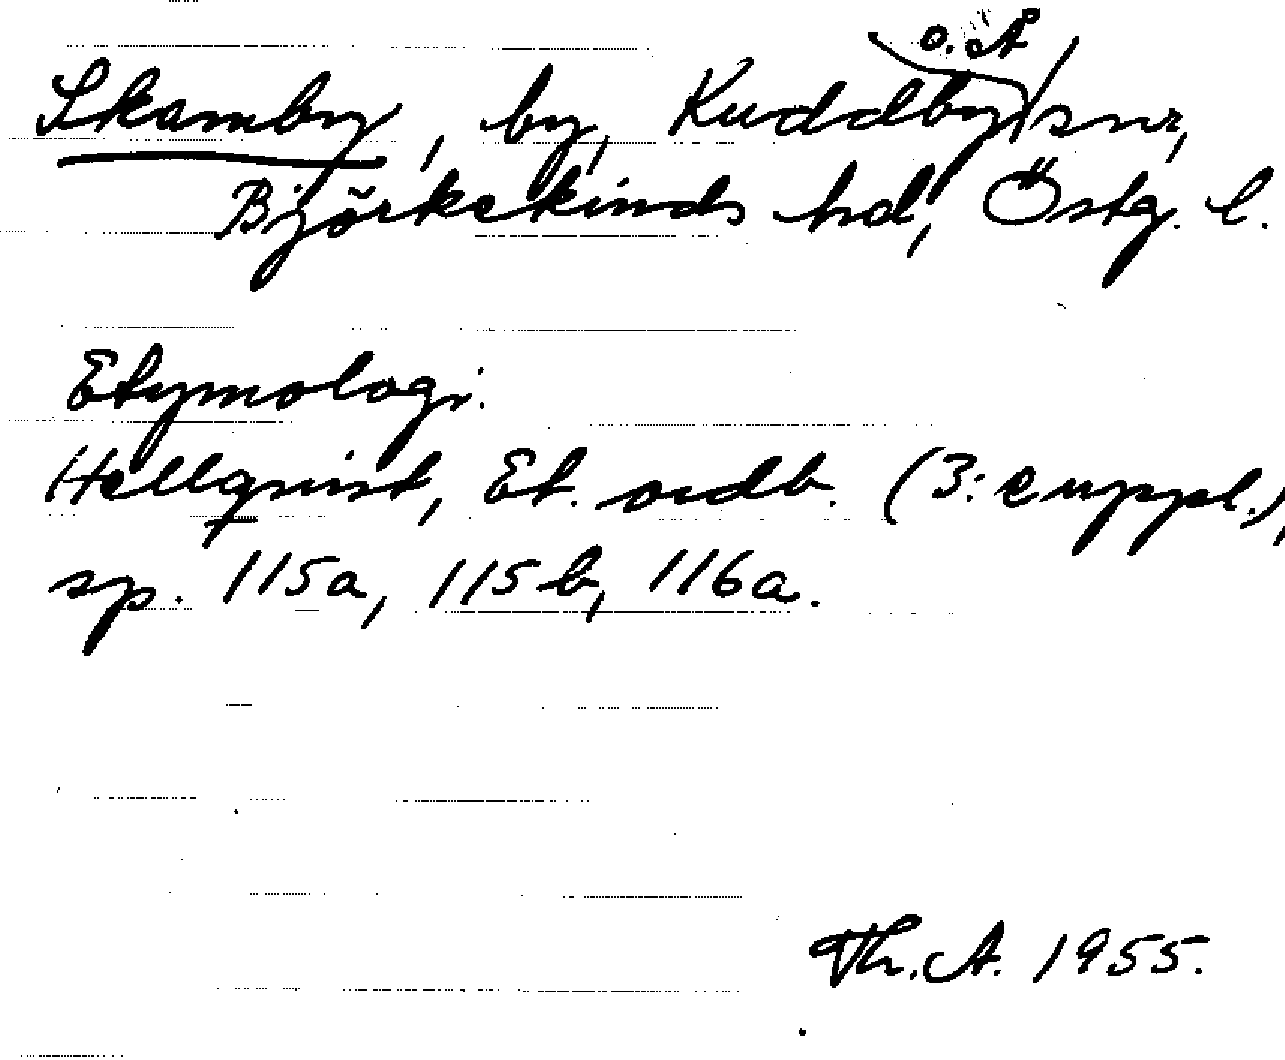 o. Å
Skamby, by, Kuddby snr,
Björkekinds hd, Östg. l.
Etymologi.
Hellqvist, Et. ordb. (3: e uppl.),
sp. 115a, 115b, 116a.
Th. A. 1955.